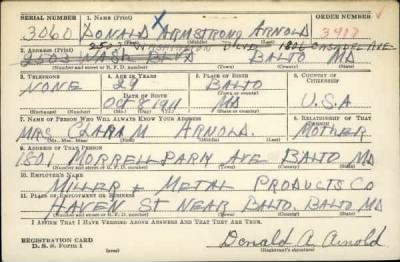 SERIAL NUMBER 1. NAME (Print) ORDER NUMBER
3060 DONALD ARMSTRONG ARNOLD 3917
(First) (Middle) (Last)
2. ADDRESS (Print)
2503 WASH BLVD BALTO MD
(Number and street or R. F. D. number) (Town) (County) (State)
3. TELEPHONE 4. AGE IN YEARS 5. PLACE OF BIRTH 6. COUNTRY OF CITIZENSHIP
NONE 29 BALTO
DATE OF BIRTH
OCT 8 1911 MD U.S.A
(Exchange) (Number) (Mo.) (Day) (Yr.) (State or country)
7. NAME OF PERSON WHO WILL ALWAYS KNOW YOUR ADDRESS 8. RELATIONSHIP OF THAT PERSON
MRS. CLARA M ARNOLD. MOTHER
(Mr., Mrs., Miss) (First) (Middle) (Last)
9. ADDRESS OF THAT PERSON
1801 MORRELL PARK AVE BALTO MD
(Number and street or R. F. D. number) (Town) (County) (State)
10. EMPLOYER'S NAME
MILLER + METAL PRODUCTS CO
11. PLACE OF EMPLOYMENT OR BUSINESS
HAVEN ST NEAR BALTO. BALTO MD
(Number and street or R. F. D. number) (Town) (County) (State)
I AFFIRM THAT I HAVE VERIFIED ABOVE ANSWERS AND THAT THEY ARE TRUE.
REGISTRATION CARD
D. S. S. Form 1 (over) Donald A. Arnold
(Registrant's signature)